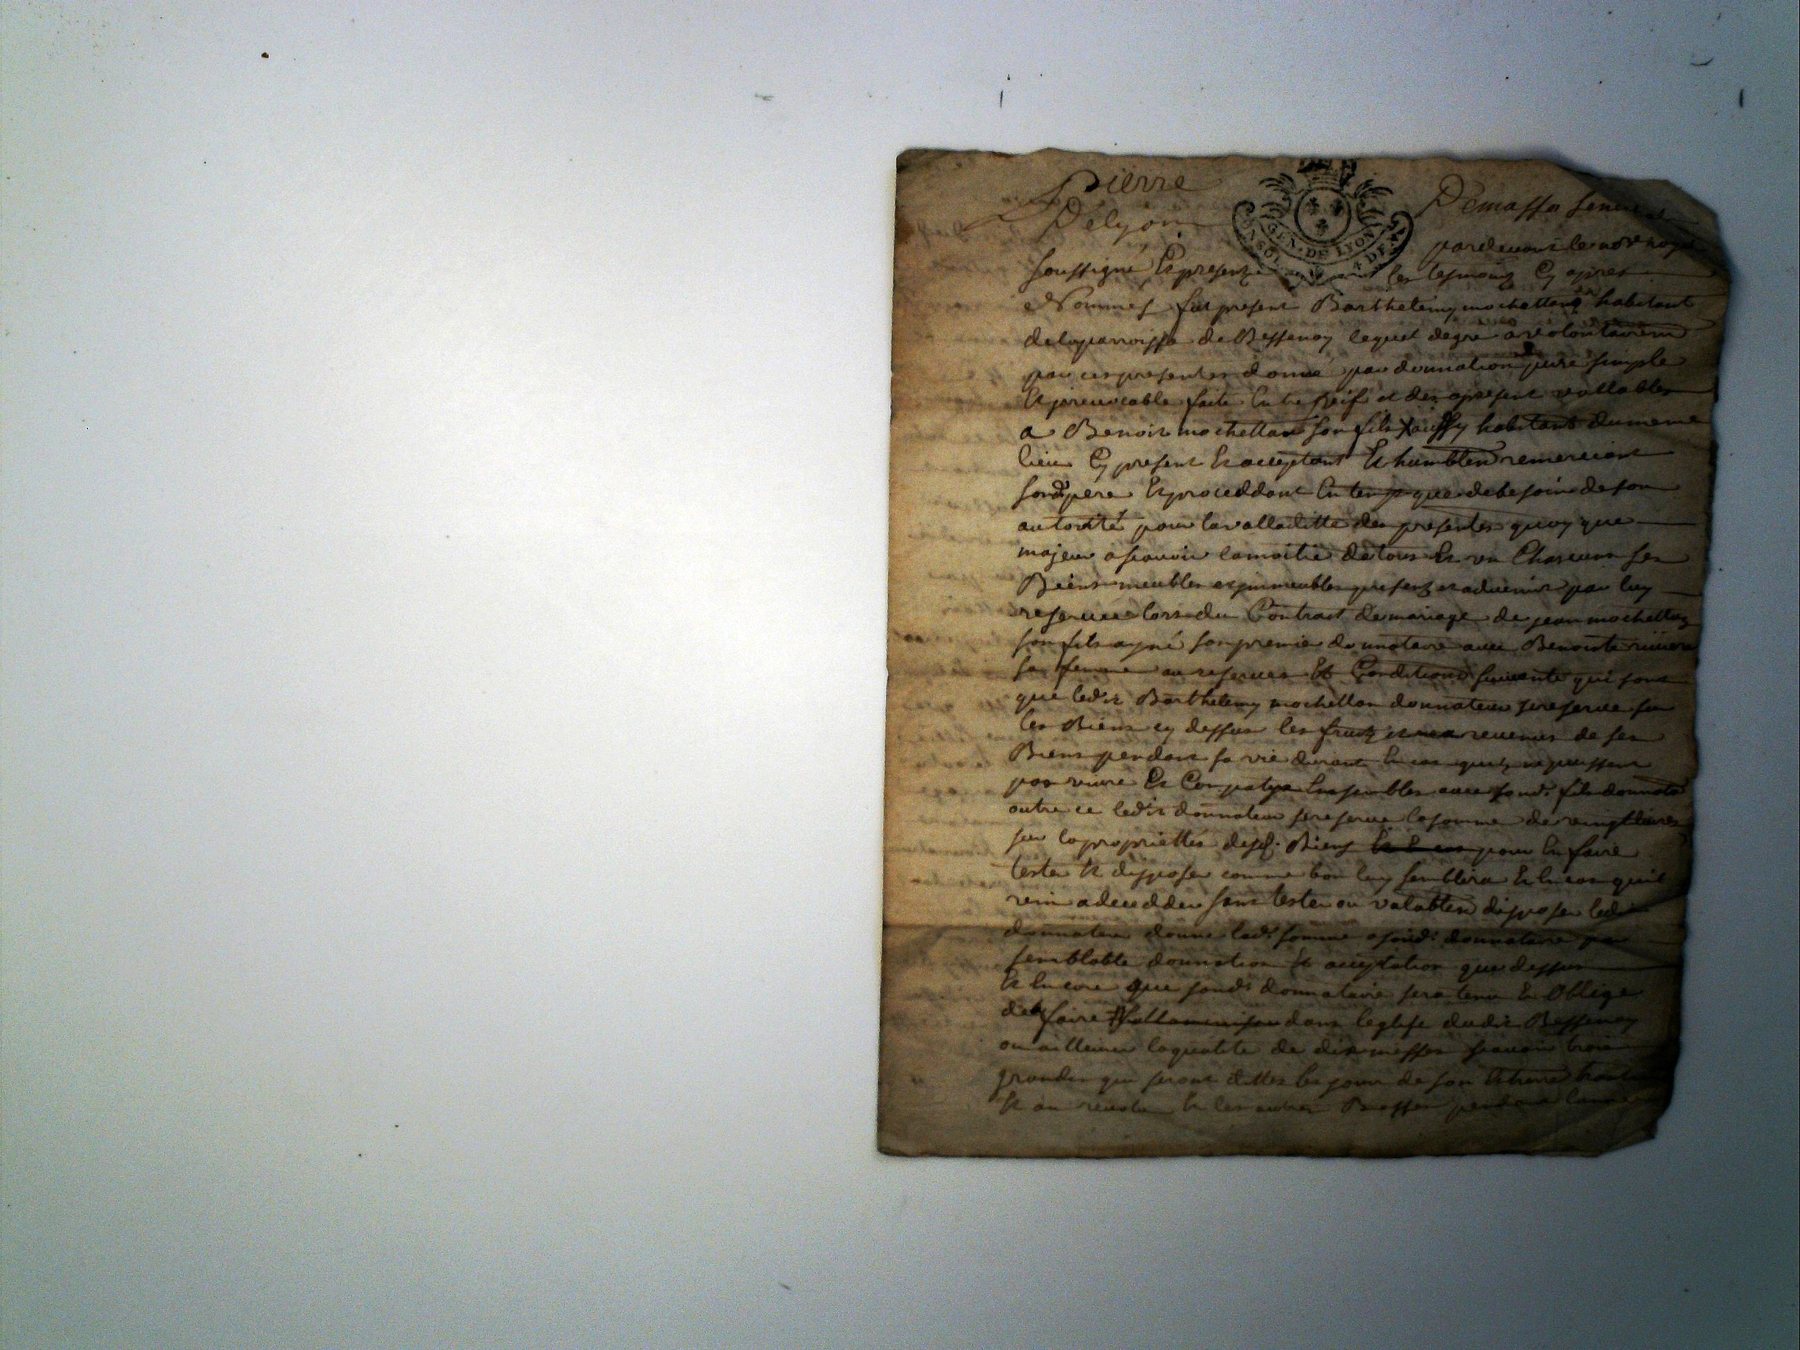 Pierre
Delyon
GEN · DE LYON
4 DEN
Demasso senes
pardevant le no.re royal
soussigné Et presentz les tesmoins Cy apres
Nommes fut present Barthelemy mochettan habitant
de la parroisse de Bessenay lequel de gre a volontairem
par ces presentes donné par donnation pure simple
Et jrrevocable faite Entre veifs et des apresent vallables
a Benoit mochettan son fils aussy habitant du meme
lieu Cy present Et acceptant Et humblem remerciant
sond pere Et proceddant En temps que de besoin de son
autorité pour la validitté des presentes quoy que
majeur ascavoir la moitié de tous Et un Chascuns ses
Biens meubles et jmmeubles presentz et advenir par luy
reservee lors du Contract de mariage de jean mochettan
son fils ayné son premier donnataire avec Benoiste
sa femme au reserves Et Conditions suivante qui sont
que ledit Barthelemy mochettan donnateur se reserve sur
les Biens cy dessus les fruitz et revenus de ses
Biens pendant sa vie durant En cas quilz ne puissent
pas vivre Et Compatyr Ensembles avec sond. fils donnatere
outre ce ledit donnateur se reserve la somme de vingt livres
sur la propriettés desd. Biens pour En faire
tester Et disposer comme bon luy semblera Et En cas quil
vint a decedder sans tester ou valablem disposer ledit
donnateur donne lad. somme a sond. donnataire par
semblable donnation Et acceptation que dessus
Et Encore que sond. donnataire sera tenu Et Obligé
de faire dans leglise dudit Bessenay
ou ailleurs la quatité de dix messes scavoir trois
grandes qui seront dittes les jours de son
Et au revolu Et les autres Basses pendant lannee